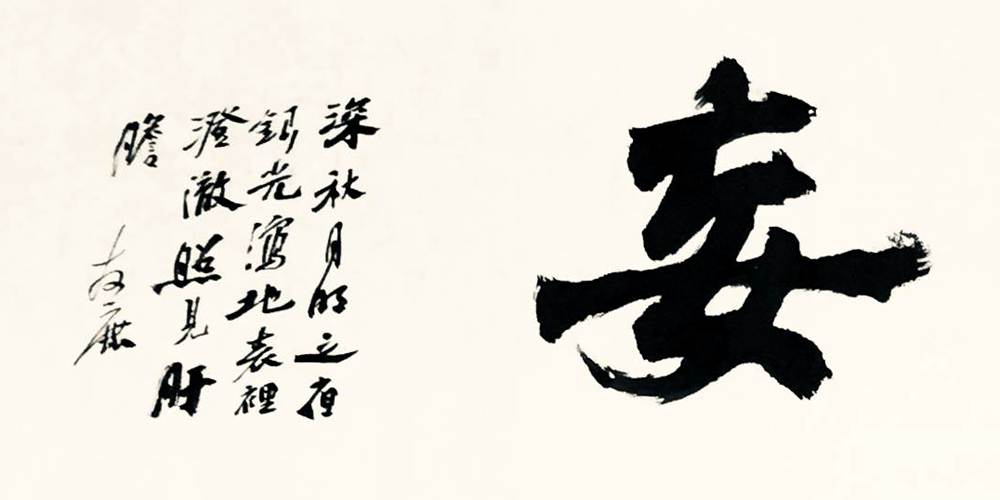 妄
深秋月明之夜
銀光瀉地表裡
澄澈照見肝
膽